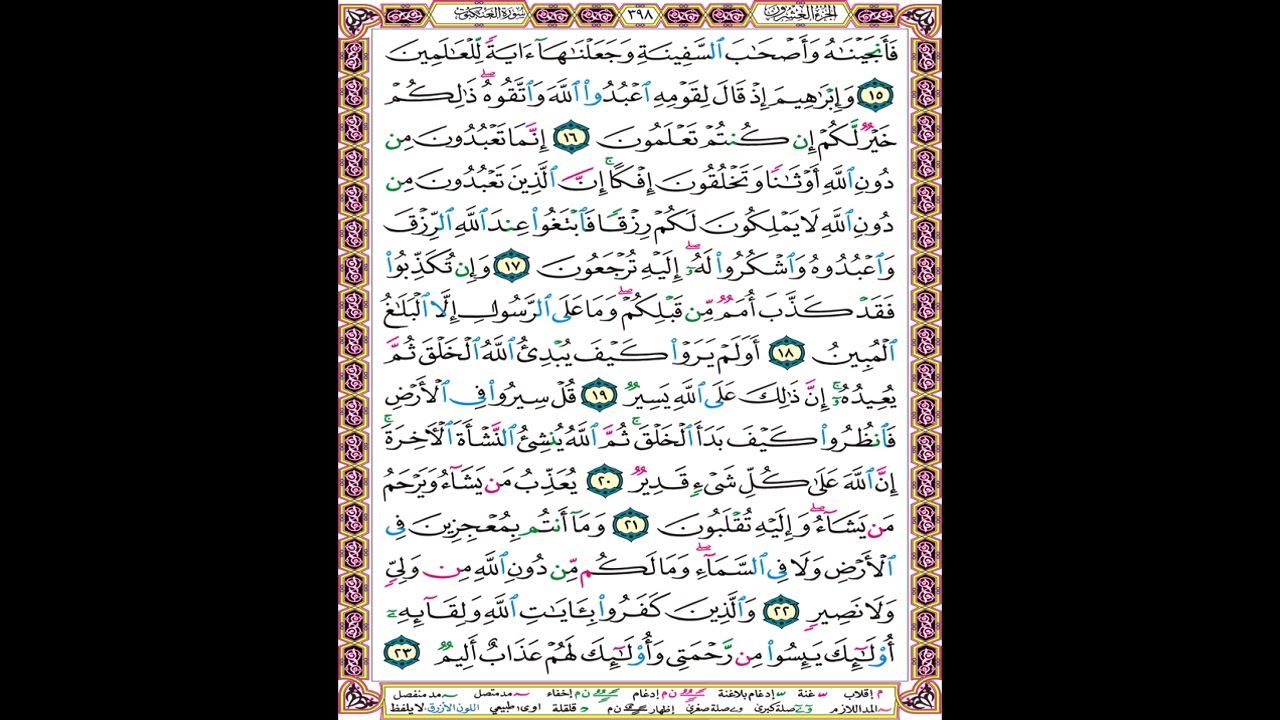 الجزء العشرون ٣٩٨ سورة العنكبوت
فَأَنجَيْنَٰهُ وَأَصْحَٰبَ ٱلسَّفِينَةِ وَجَعَلْنَٰهَآ ءَايَةً لِّلْعَٰلَمِينَ
١٥ وَإِبْرَٰهِيمَ إِذْ قَالَ لِقَوْمِهِ ٱعْبُدُوا۟ ٱللَّهَ وَٱتَّقُوهُ ۖ ذَٰلِكُمْ
خَيْرٌ لَّكُمْ إِن كُنتُمْ تَعْلَمُونَ ١٦ إِنَّمَا تَعْبُدُونَ مِن
دُونِ ٱللَّهِ أَوْثَٰنًا وَتَخْلُقُونَ إِفْكًا ۚ إِنَّ ٱلَّذِينَ تَعْبُدُونَ مِن
دُونِ ٱللَّهِ لَا يَمْلِكُونَ لَكُمْ رِزْقًا فَٱبْتَغُوا۟ عِندَ ٱللَّهِ ٱلرِّزْقَ
وَٱعْبُدُوهُ وَٱشْكُرُوا۟ لَهُۥٓ ۖ إِلَيْهِ تُرْجَعُونَ ١٧ وَإِن تُكَذِّبُوا۟
فَقَدْ كَذَّبَ أُمَمٌ مِّن قَبْلِكُمْ ۖ وَمَا عَلَى ٱلرَّسُولِ إِلَّا ٱلْبَلَٰغُ
ٱلْمُبِينُ ١٨ أَوَلَمْ يَرَوْا۟ كَيْفَ يُبْدِئُ ٱللَّهُ ٱلْخَلْقَ ثُمَّ
يُعِيدُهُۥٓ ۚ إِنَّ ذَٰلِكَ عَلَى ٱللَّهِ يَسِيرٌ ١٩ قُلْ سِيرُوا۟ فِى ٱلْأَرْضِ
فَٱنظُرُوا۟ كَيْفَ بَدَأَ ٱلْخَلْقَ ۚ ثُمَّ ٱللَّهُ يُنشِئُ ٱلنَّشْأَةَ ٱلْـَٔاخِرَةَ ۚ
إِنَّ ٱللَّهَ عَلَىٰ كُلِّ شَىْءٍ قَدِيرٌ ٢٠ يُعَذِّبُ مَن يَشَآءُ وَيَرْحَمُ
مَن يَشَآءُ ۖ وَإِلَيْهِ تُقْلَبُونَ ٢١ وَمَآ أَنتُم بِمُعْجِزِينَ فِى
ٱلْأَرْضِ وَلَا فِى ٱلسَّمَآءِ ۖ وَمَا لَكُم مِّن دُونِ ٱللَّهِ مِن وَلِىٍّ
وَلَا نَصِيرٍ ٢٢ وَٱلَّذِينَ كَفَرُوا۟ بِـَٔايَٰتِ ٱللَّهِ وَلِقَآئِهِۦٓ
أُو۟لَٰٓئِكَ يَئِسُوا۟ مِن رَّحْمَتِى وَأُو۟لَٰٓئِكَ لَهُمْ عَذَابٌ أَلِيمٌ ٢٣
م إقلاب غنة إدغام بلاغنة ن م إدغام ن م إخفاء مد متصل مد منفصل
المد اللازم صلة كبرى صلة صغرى إظهار ن م قلقلة اوى؛ طبيعي اللون الأزرق لا يلفظ